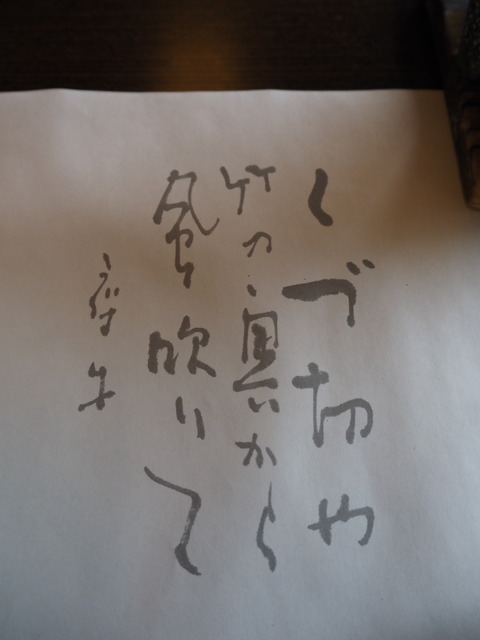 くづ切や
竹の奥から
風吹いて